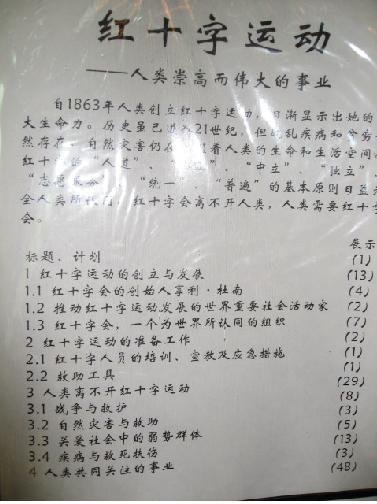 红十字运动
——人类崇高而伟大的事业
自1863年人类创立红十字运动,日渐显示出她的
大生命力。历史虽已进入21世纪,但
乱疾病和
然存在,自然灾害仍 着人类的生命和生活空间
红十 的"人道"、 "中立"、"独立"、
"志愿 "、"统一"、"普遍"的基本原则日益
全人类所 ,红十字会离不开人类,人类需要红十字
会。
展示
标题、计划 (1)
1 红十字运动的创立与发展 (13)
1.1 红十字会的创始人亨利·杜南 (4)
1.2 推动红十字运动发展的世界重要社会活动家 (2)
1.3 红十字会,一个为世界所认同的组织 (7)
2 红十字运动的准备工作 (2)
2.1 红十字人员的培训、宣教及应急措施 (1)
2.2 救助工具 (1)
3 人类离不开红十字运动 (29)
3.1 战争与救护 (8)
3.2 自然灾害与救助 (3)
3.3 关爱社会中的弱势群体 (5)
3.4 疾病与救死扶伤 (13)
4 人类共同关注的事业 (3)
(48)